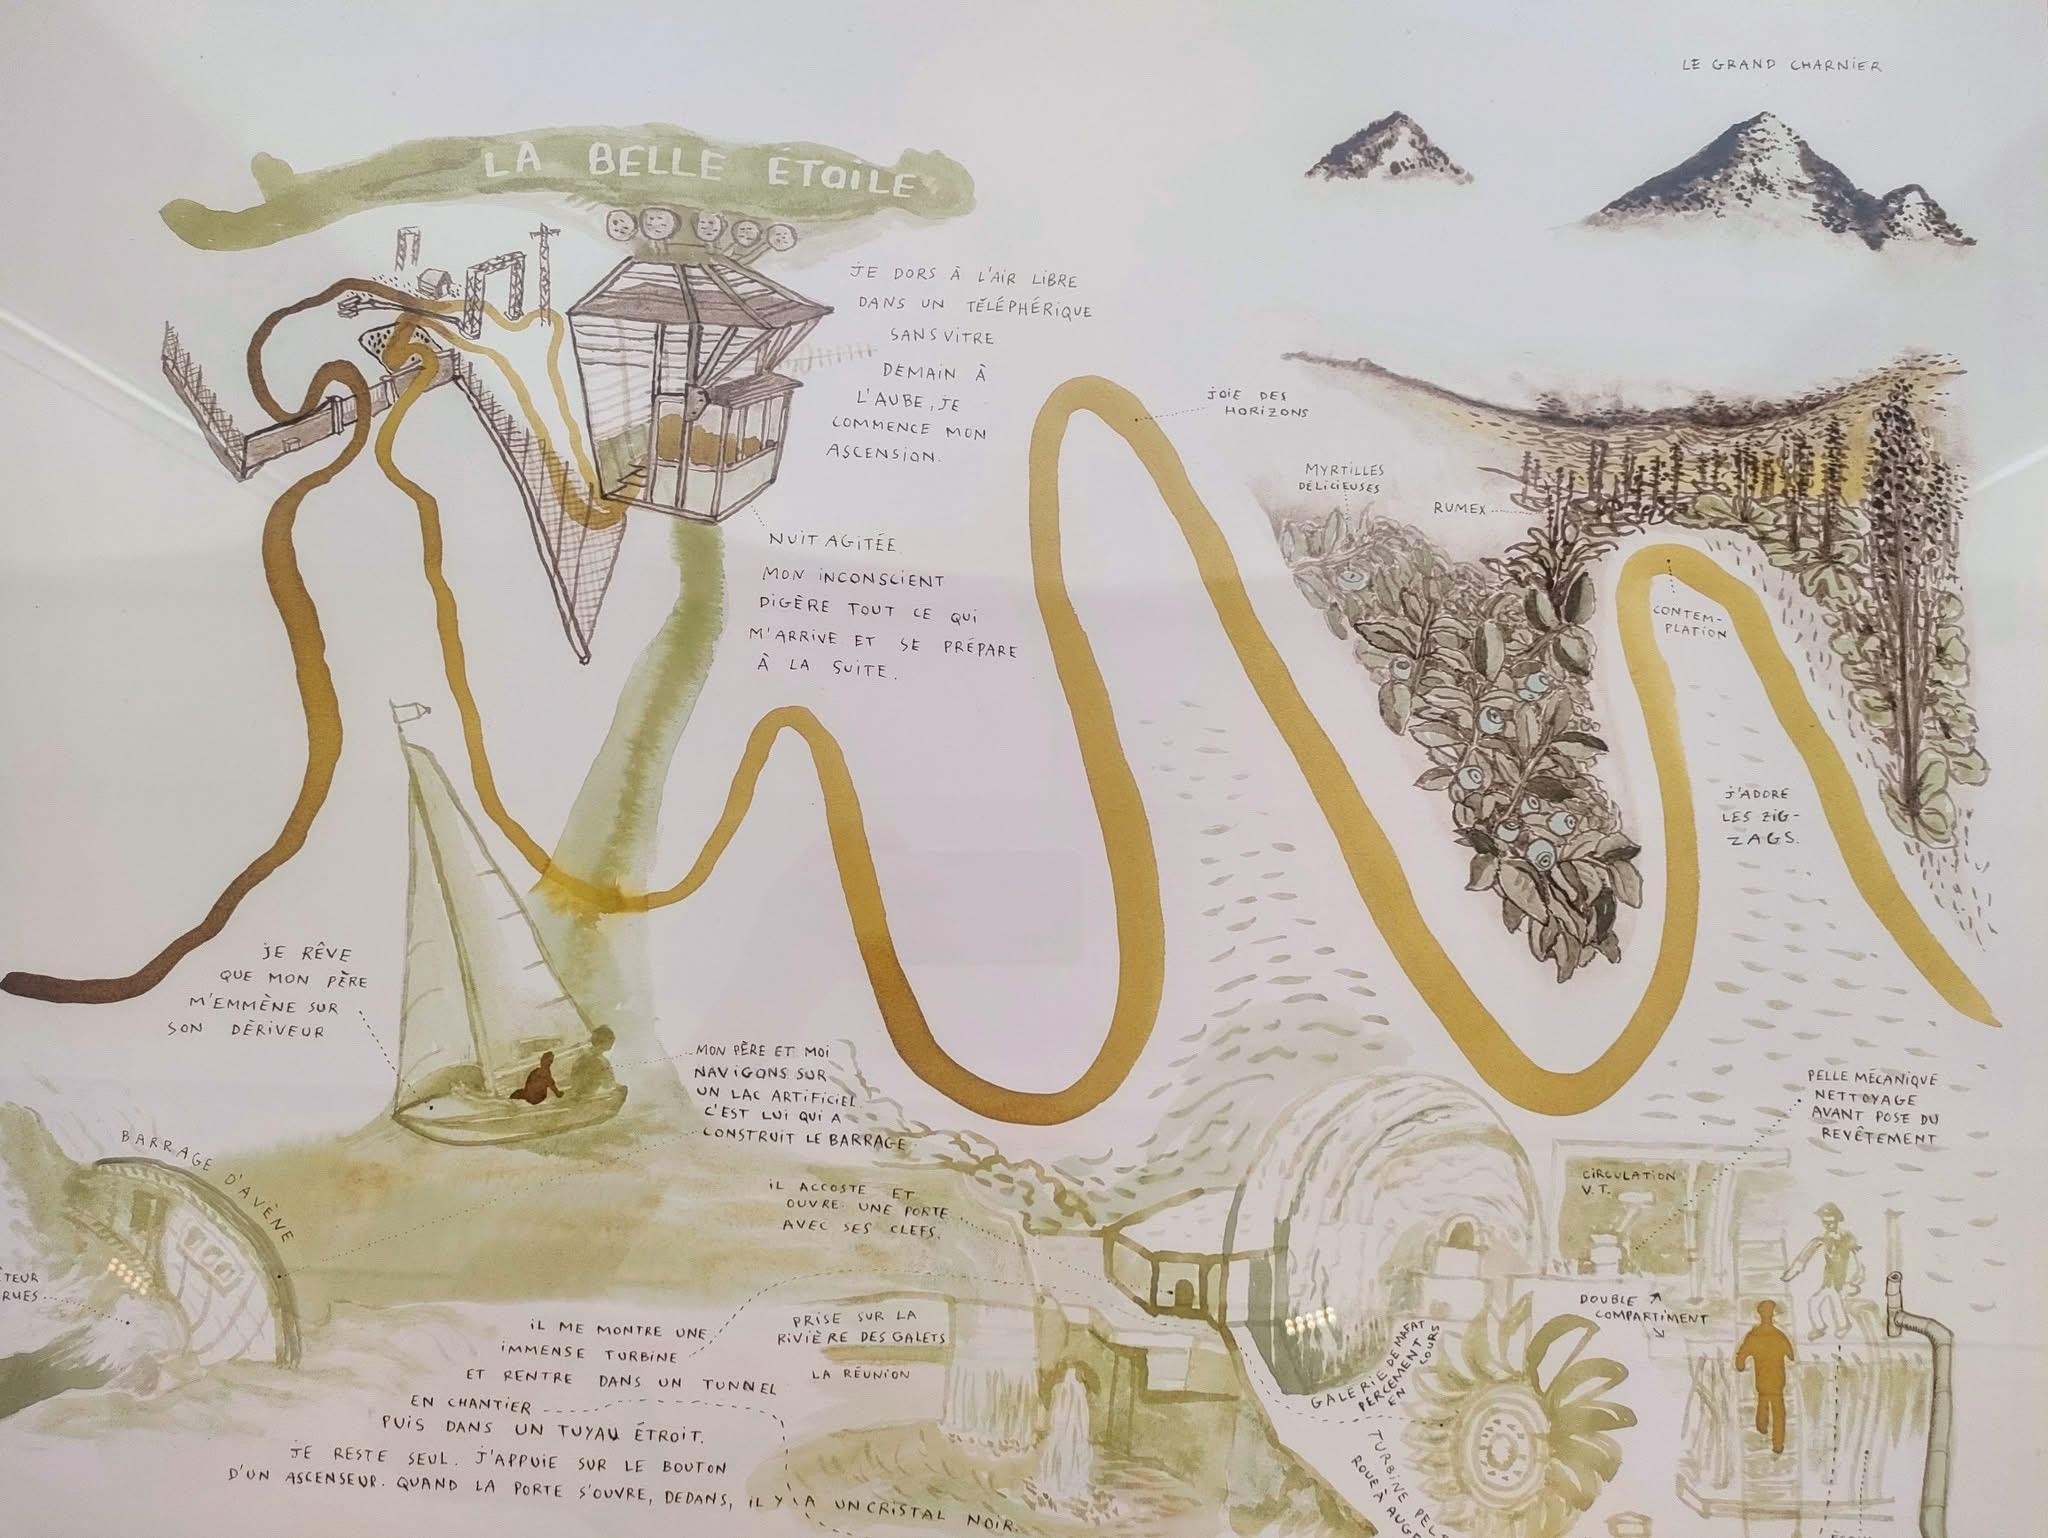 LE GRAND CHARNIER
LA BELLE ÉTOILE
JE DORS À L'AIR LIBRE
DANS UN TÉLÉPHÉRIQUE
SANS VITRE
DEMAIN À
L'AUBE, JE
COMMENCE MON
ASCENSION.
JOIE DES
HORIZONS
MYRTILLES
DÉLICIEUSES
RUMEX
CONTEM-
PLATION
NUIT AGITÉE.
MON INCONSCIENT
DIGÈRE TOUT CE QUI
M'ARRIVE ET SE PRÉPARE
À LA SUITE.
J'ADORE
LES ZIG-
ZAGS.
JE RÊVE
QUE MON PÈRE
M'EMMÈNE SUR
SON DÉRIVEUR
MON PÈRE ET MOI
NAVIGONS SUR
UN LAC ARTIFICIEL.
C'EST LUI QUI A
CONSTRUIT LE BARRAGE
PELLE MÉCANIQUE
NETTOYAGE
AVANT POSE DU
REVÊTEMENT
BARRAGE D'AVÈNE
CIRCULATION
V.T.
IL ACCOSTE ET
OUVRE UNE PORTE
AVEC SES CLEFS.
TEUR
RUES
DOUBLE
COMPARTIMENT
IL ME MONTRE UNE
IMMENSE TURBINE
ET RENTRE DANS UN TUNNEL
EN CHANTIER
PUIS DANS UN TUYAU ÉTROIT.
JE RESTE SEUL. J'APPUIE SUR LE BOUTON
D'UN ASCENSEUR. QUAND LA PORTE S'OUVRE, DEDANS, IL Y A UN CRISTAL NOIR.
PRISE SUR LA
RIVIÈRE DES GALETS
LA RÉUNION
GALERIE DE MAFAT
PERCEMENT
EN COURS
TURBINE
ROUE À